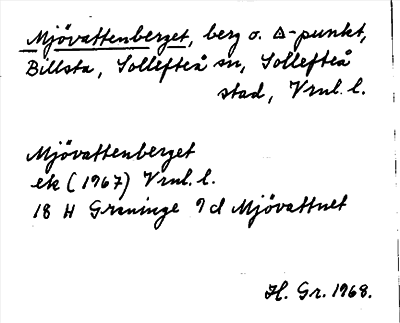 Mjövattenberget, berg o. △-punkt,
Billsta, Sollefteå sn, Sollefteå
stad, Vrnl. l.
Mjövattenberget
ek (1967) Vrnl. l.
18 H Graninge 9d Mjövattnet
H. Gr. 1968.